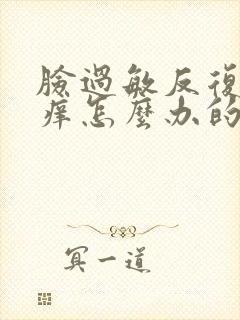 臉過敏反復
癢怎麼办的
冥一道